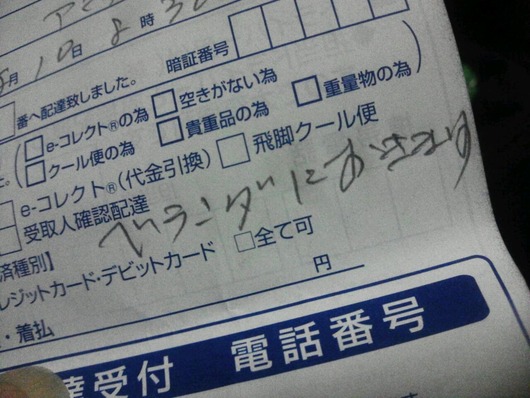 月10日8時3
暗証番号
番へ配達致しました。
□e-コレクト®の為 □空きがない為 □重量物の為
□クール便の為 □貴重品の為
e-コレクト®(代金引換) □飛脚クール便
受取人確認配達
ベランダにおきます
済種別】
レジットカード・デビットカード □全て可
円
・着払
達受付 電話番号